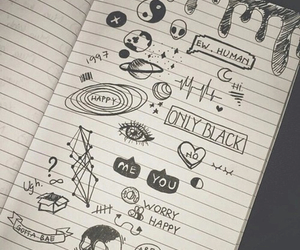 EW, HUMAN
1997
Hi
HAPPY
ONLY BLACK
NO
ME YOU
?
Ugh.
WORRY
HAPPY
GOTTA BAE